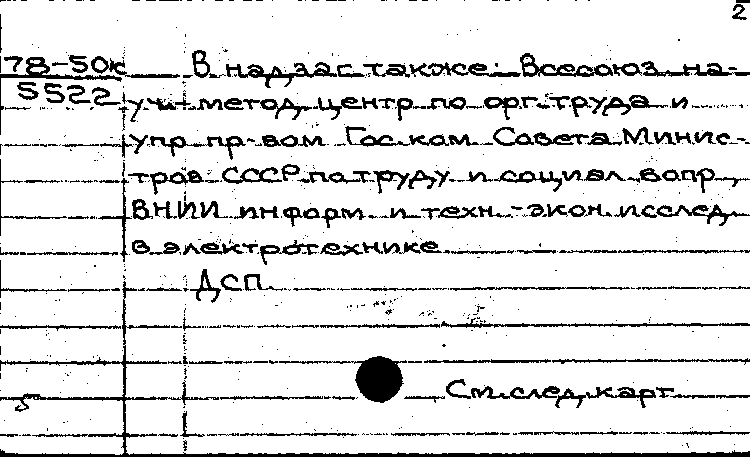 2
78-50к В надзаг. также: Всесоюз. на-
5522 уч.-метод. центр по орг. труда и
упр. пр-вом Гос. ком. Совета Минис-
тров СССР по труду и социал. вопр.,
ВНИИ информ. и техн.-экон. исслед.
в электротехнике
ДСП.
См. след. карт.
5